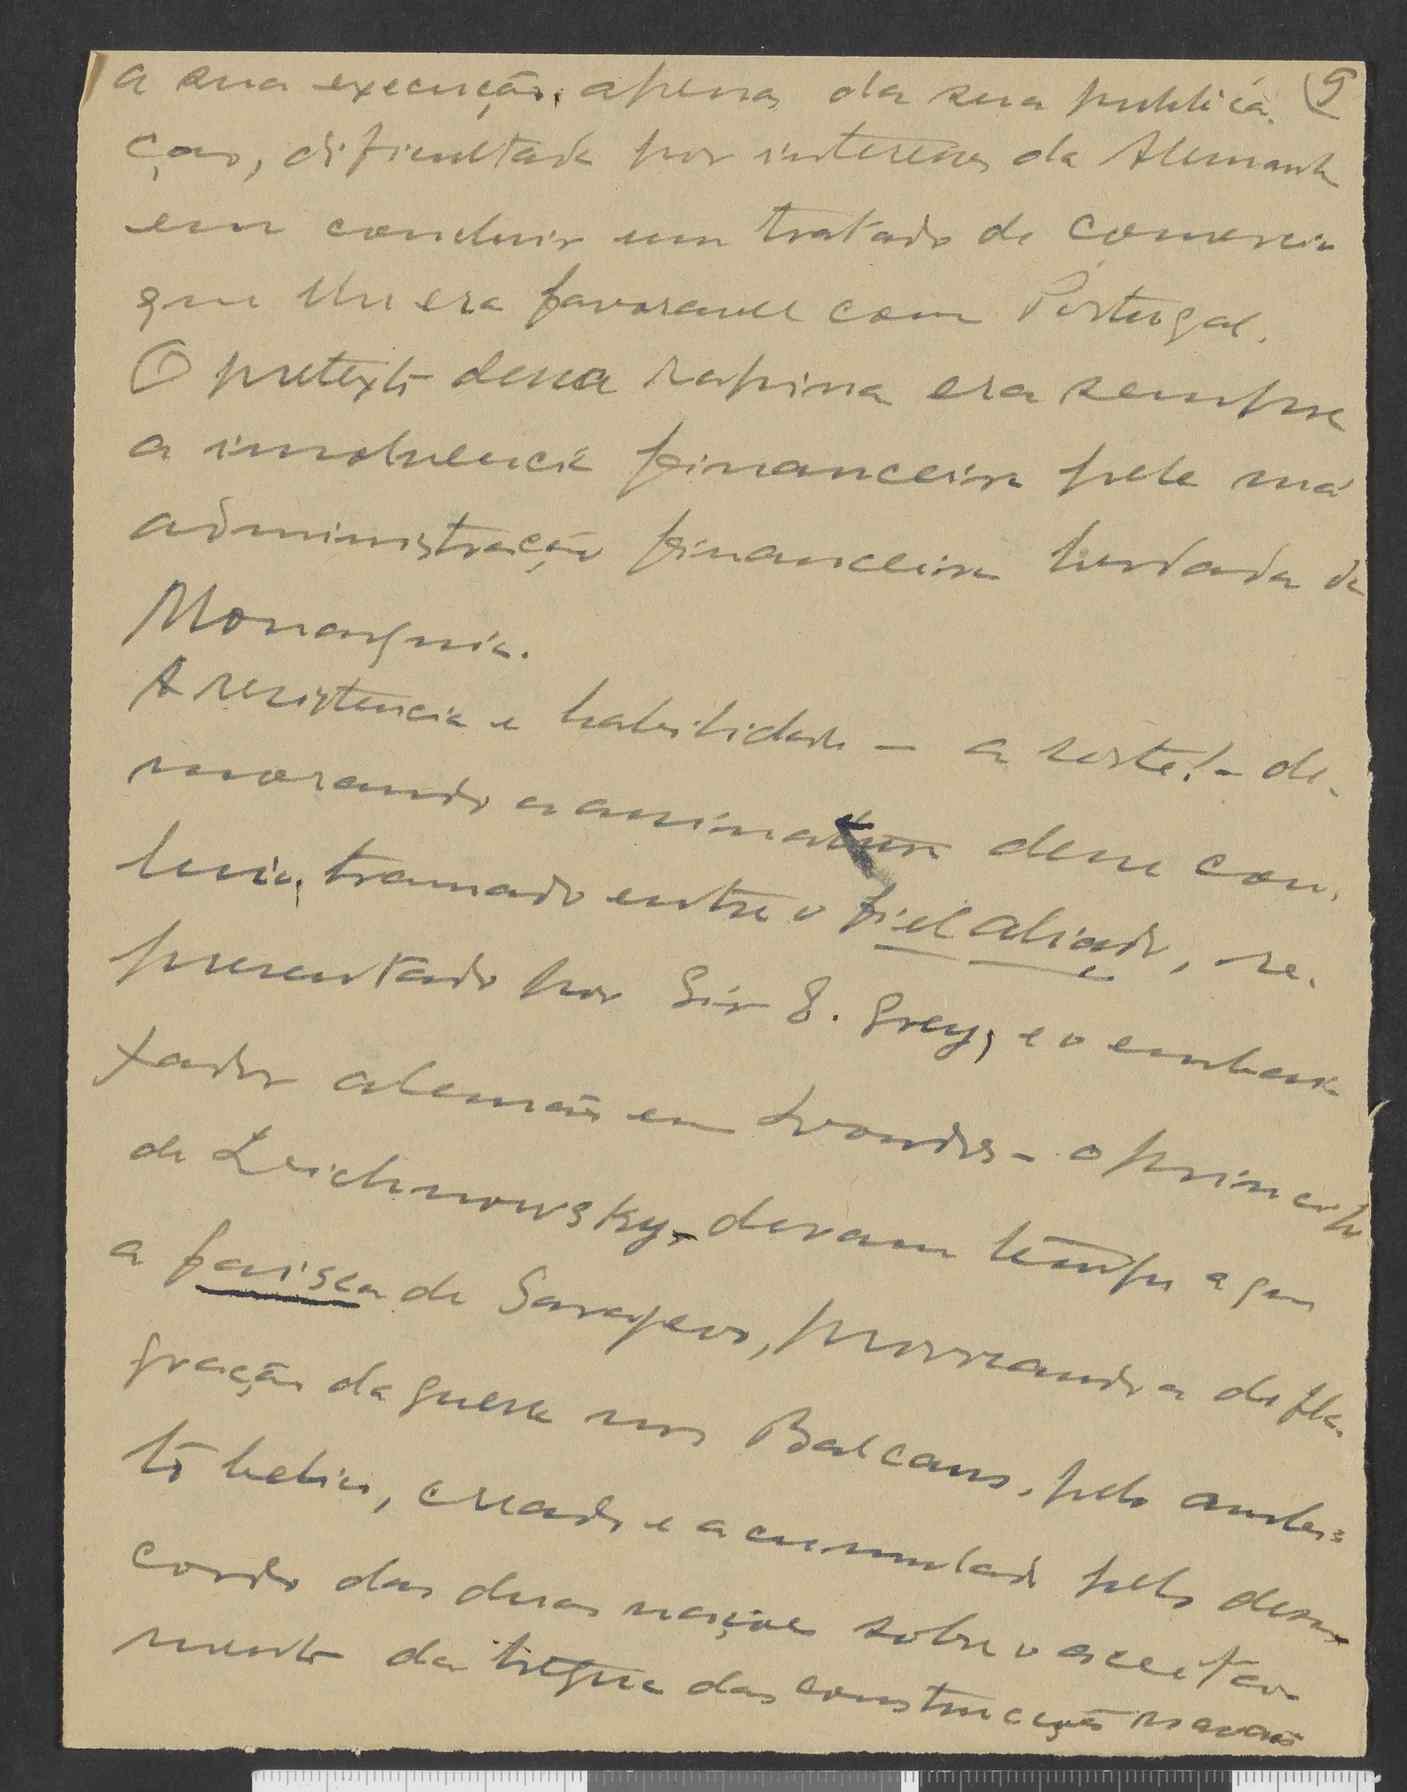 a sua execução, apenas da sua publica- 9
ção, dificultada por interesses da Alemanha
em concluir um tratado de comercio
que lhe era favoravel com Portugal.
O pretexto dessa rapina era sempre
a insolvencia financeira pela má
administração financeira herdada da
Monarquia.
A resistencia e habilidade — a sorte! — de-
morando a assinatura desse con-
luio, tramado entre o fiel aliado, re-
presentado por Sir E. Grey, e o embai-
xador alemão em Londres — o principe
de Leichnowsky, deram tempo a que
a faisca de Sarajevo, provocando a defla-
gração da guerra nos Balcans, pelo ambien-
te belico, creado e acumulado pelo desa-
cordo das duas nações sobre o aceita-
mento da tregua das construcções navais